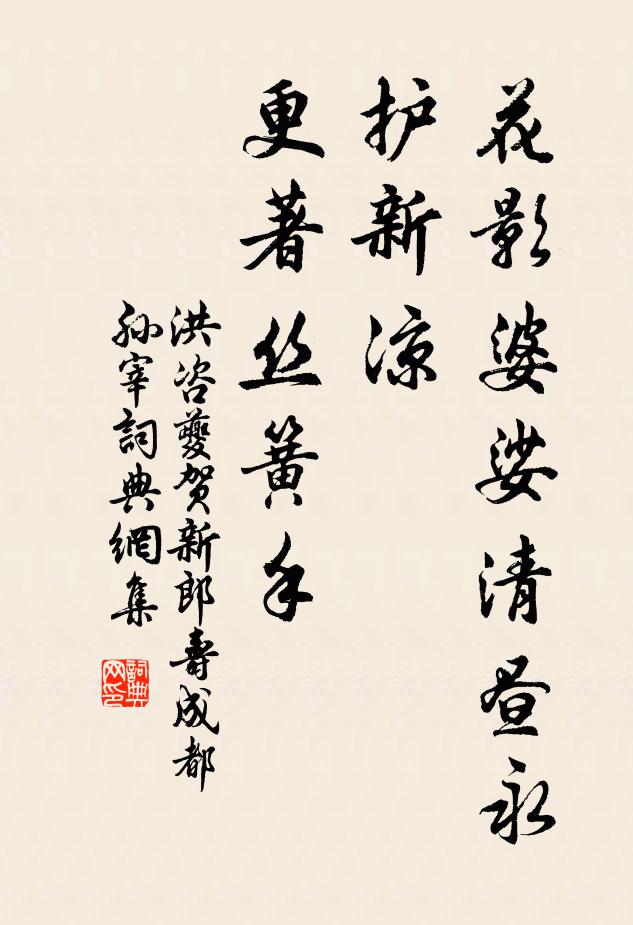 花影婆娑清昼永
护新凉
更著丝簧手
洪咨夔贺新郎寿成都
孙宰詞典網集
詞典网印